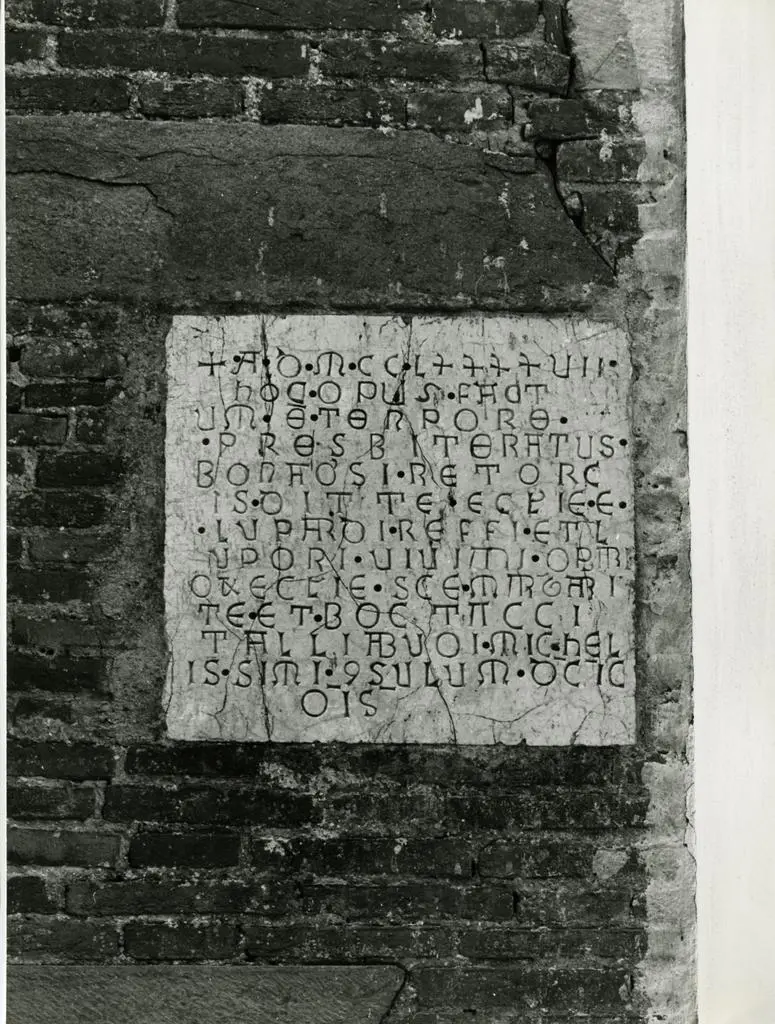 +·A·D·M·CCL++++VII·
hOC·OPUS·FACT
UM·E·TENPORE·
·PRESBITERATUS·
BONAOSI·RETORC
IS·DITTE·ECLIE·E·
·LUPARDI·REFFI·ETL
UPORI·VIVIMI·OPTI
O&ECLIE·SCE·M
TE·ET·BOE TACCI
TALLIABUOI·MIChEL
IS·SIMI·9SULUM·DCIC
OIS